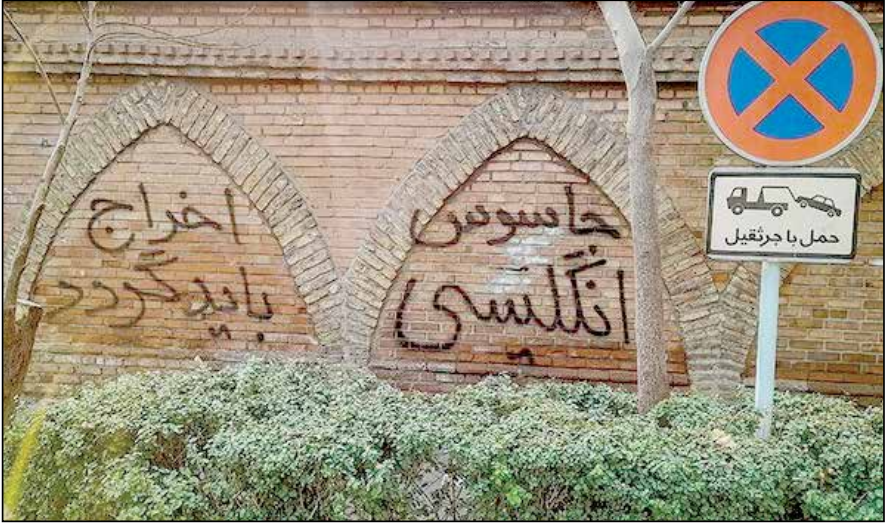 جاسوس
انگلیسی
اخراج
باید گردد
حمل با جرثقیل